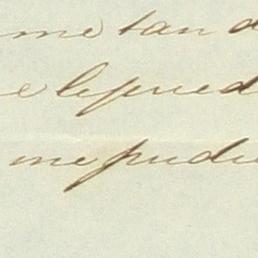 me tan d
e le pued
me pudi